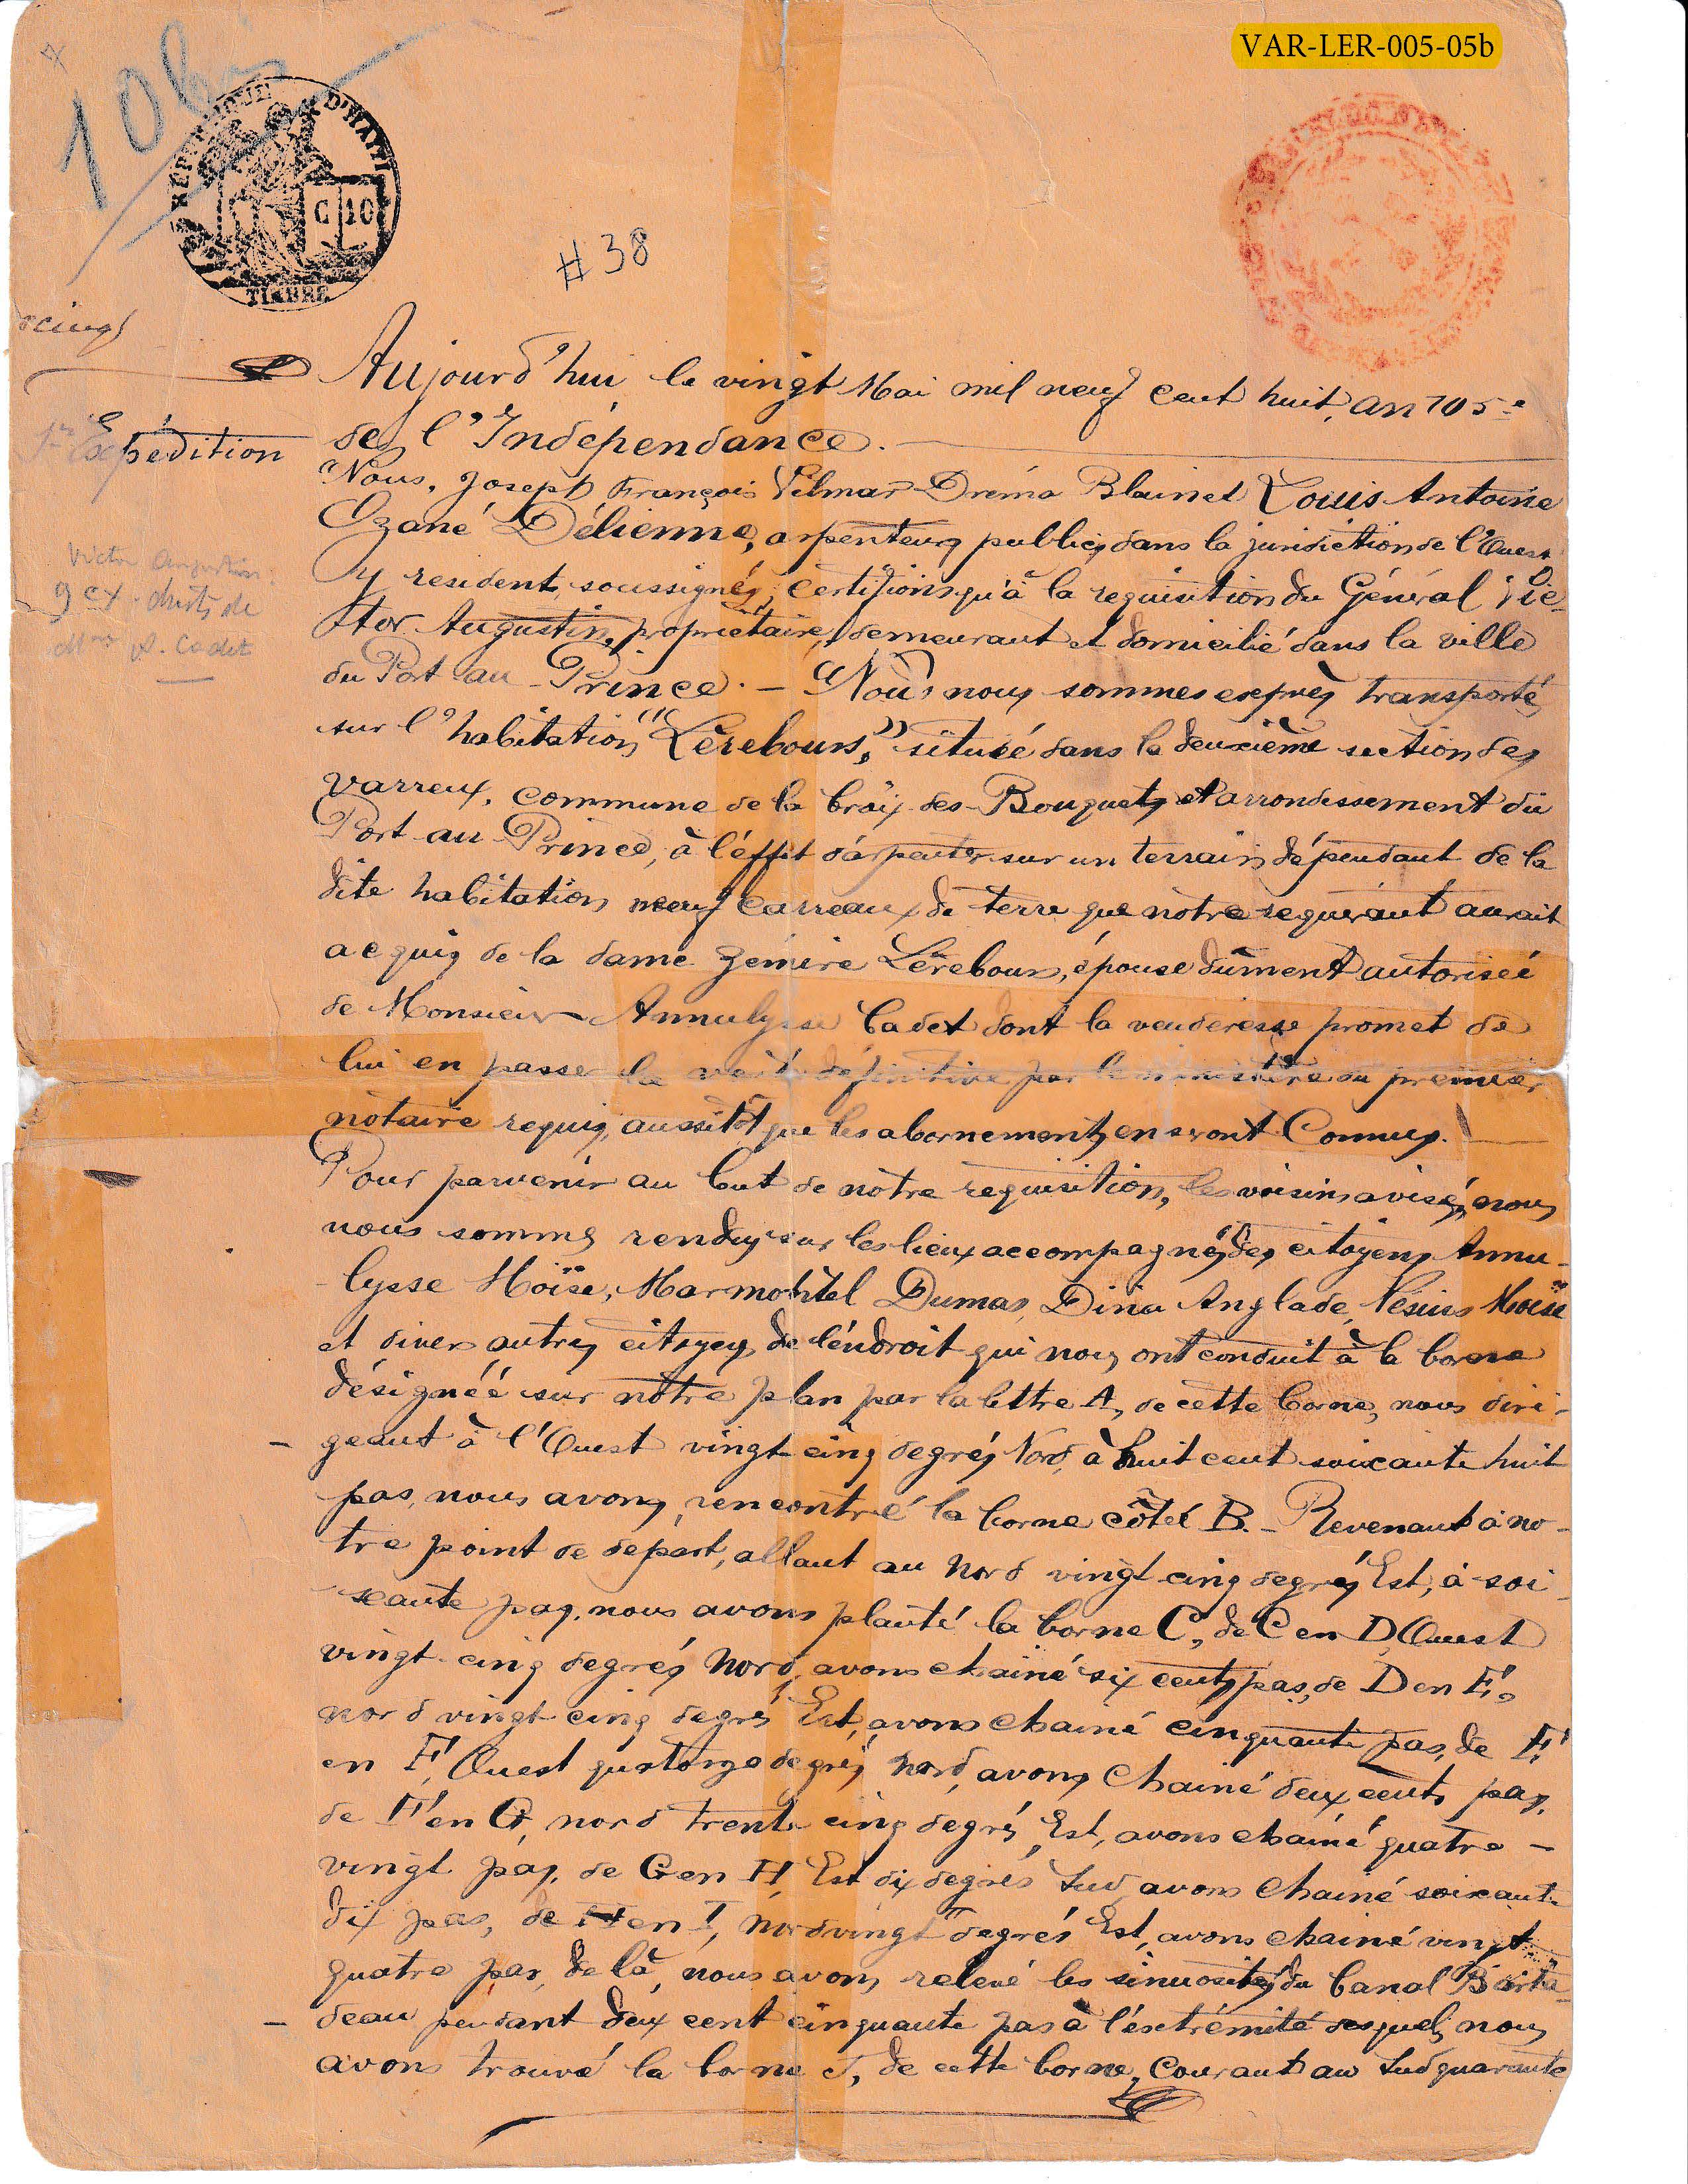 VAR-LER-005-05b
10 bis
REPUBLIQUE D'HAYTI
C 10
TIMBRE
# 38
Aujourd'hui le vingt Mai mil neuf cent huit, an 105e
de l'Indépendance.
1re Expédition
Nous, Joseph François Vilmar Dréma Blainet Louis Antoine
Ozané Délienne, arpenteurs publics dans la juridiction de l'Ouest
y resident, soussignés, certifions qu'à la requisition du Général Vic-
tor Augustin, propriétaire, demeurant et domicilié dans la ville
du Port au Prince. – Nous nous sommes exprès transportés
Victor Augustin:
9 cx. chists de
Mme A. Cadet
sur l'habitation "Lèrebours," située dans la deuxième section des
varreux, commune de la Croix des Bouquets et arrondissement du
Port au Prince, à l'effet d'arpenter sur un terrain dépendant de la
dite habitation neuf carreaux de terre que notre requérant aurait
acquis de la dame Zémire Lèrebours, épouse dûment autorisée
de Monsieur Annulysse Cadet dont la venderesse promet de
lui en passer la vente définitive par le ministère du premier
notaire requis, aussitôt que les abornements en seront Connus.
Pour parvenir au but de nôtre requisition, les voisins avisés, nous
nous sommes rendus sur les lieux accompagnés des citoyens Annu-
lysse Moïse, Marmontel Dumas, Dina Anglade, Vésius Moïse
et divers autres citoyens de l'endroit qui nous ont conduit à la borne
désignée sur nôtre plan par la lettre A, de cette borne, nous diri-
geant à l'Ouest vingt cinq degrés Nord, à huit cent soixante huit
pas, nous avons rencontré la borne côtée B. – Revenant à no-
tre point de départ, allant au Nord vingt cinq degrés Est, à soi-
xante pas, nous avons planté la borne C, de C en D, Ouest
vingt-cinq degrés Nord, avons chaîné six cents pas, de D en E,
nord vingt-cinq degrés Est, avons chaîné cinquante pas, de E
en F, Ouest quatorze degrés Nord, avons Chainé deux cents pas,
de F en G, nord trente cinq degrés Est, avons chaîné quatre–
vingt pas, de G en H, Est dix degrés Sud, avons Chainé soixante
dix pas, de H en I, Nord vingt degrés Est, avons chainé vingt
quatre pas, de là, nous avons relevé les sinuosités du Canal Borta-
deau pendant deux cent cinquante pas à l'extrémité desquels nous
avons trouvé la borne J, de cette borne, Courant au Sud quarante